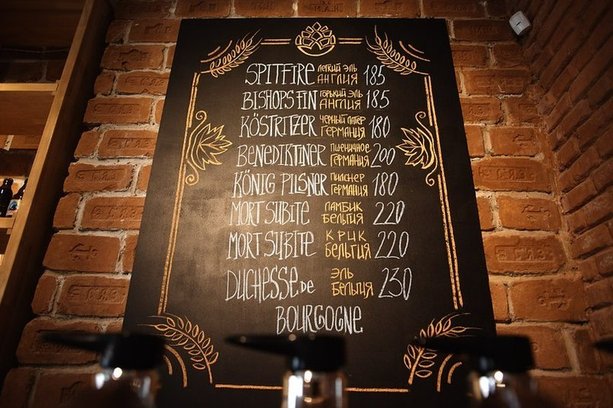 SPITFIRE ЛЕГКИЙ ЭЛЬ АНГЛИЯ 185
BISHOPS FIN ГОРЬКИЙ ЭЛЬ АНГЛИЯ 185
KÖSTRITZER ЧЕРНЫЙ ЛАГЕР ГЕРМАНИЯ 180
BENEDIKTINER ПШЕНИЧНОЕ ГЕРМАНИЯ 200
KÖNIG PILSNER ПИЛСНЕР ГЕРМАНИЯ 180
MORT SUBITE ЛАМБИК БЕЛЬГИЯ 220
MORT SUBITE КРИК БЕЛЬГИЯ 220
DUCHESSE DE ЭЛЬ БЕЛЬГИЯ 230
BOURGOGNE